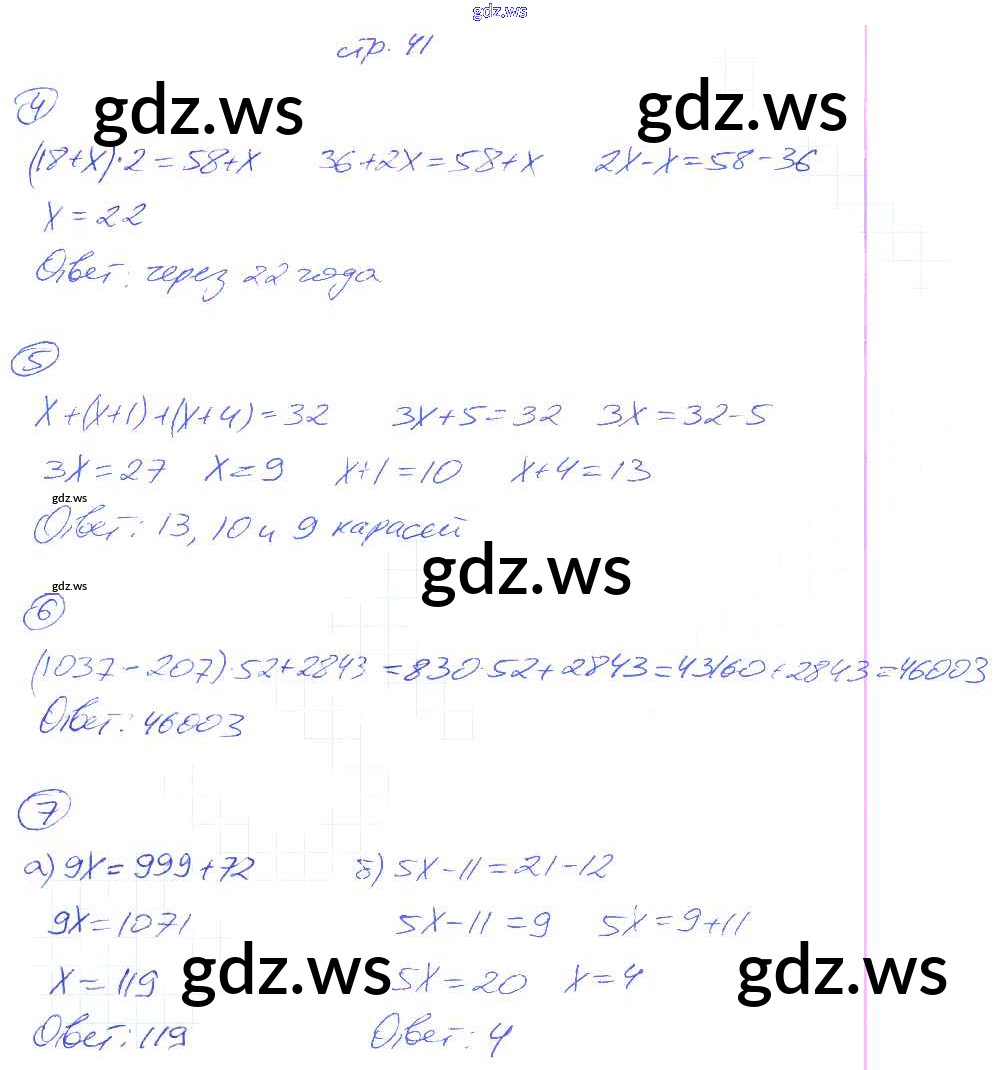 gdz.ws
стр. 41
4
gdz.ws gdz.ws
(18+x)·2=58+x 36+2x=58+x 2x-x=58-36
x=22
Ответ: через 22 года
5
x+(x+1)+(x+4)=32 3x+5=32 3x=32-5
3x=27 x=9 x+1=10 x+4=13
gdz.ws
Ответ: 13, 10 и 9 карасей
gdz.ws
gdz.ws
6
(1037-207)·52+2843=830·52+2843=43160+2843=46003
Ответ: 46003
7
а) 9x=999+72 б) 5x-11=21-12
9x=1071 5x-11=9 5x=9+11
gdz.ws gdz.ws
x=119 5x=20 x=4
Ответ: 119 Ответ: 4